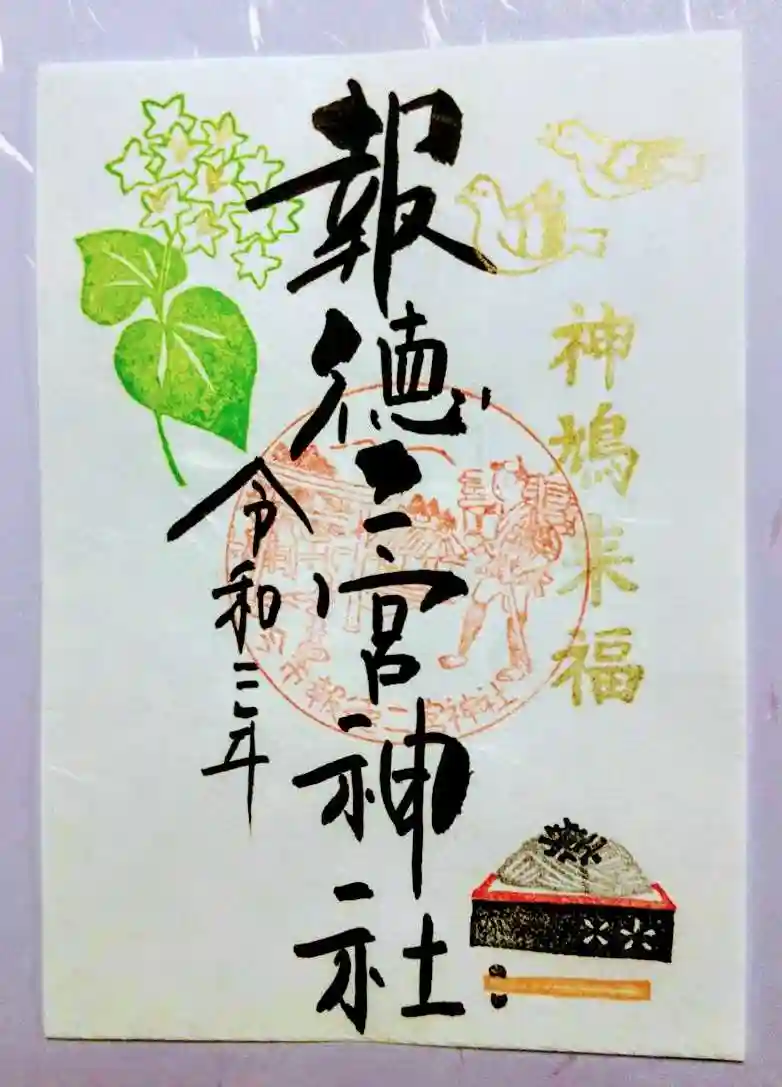 神鳩来福
報徳二宮神社
令和三年
市報徳二宮神社